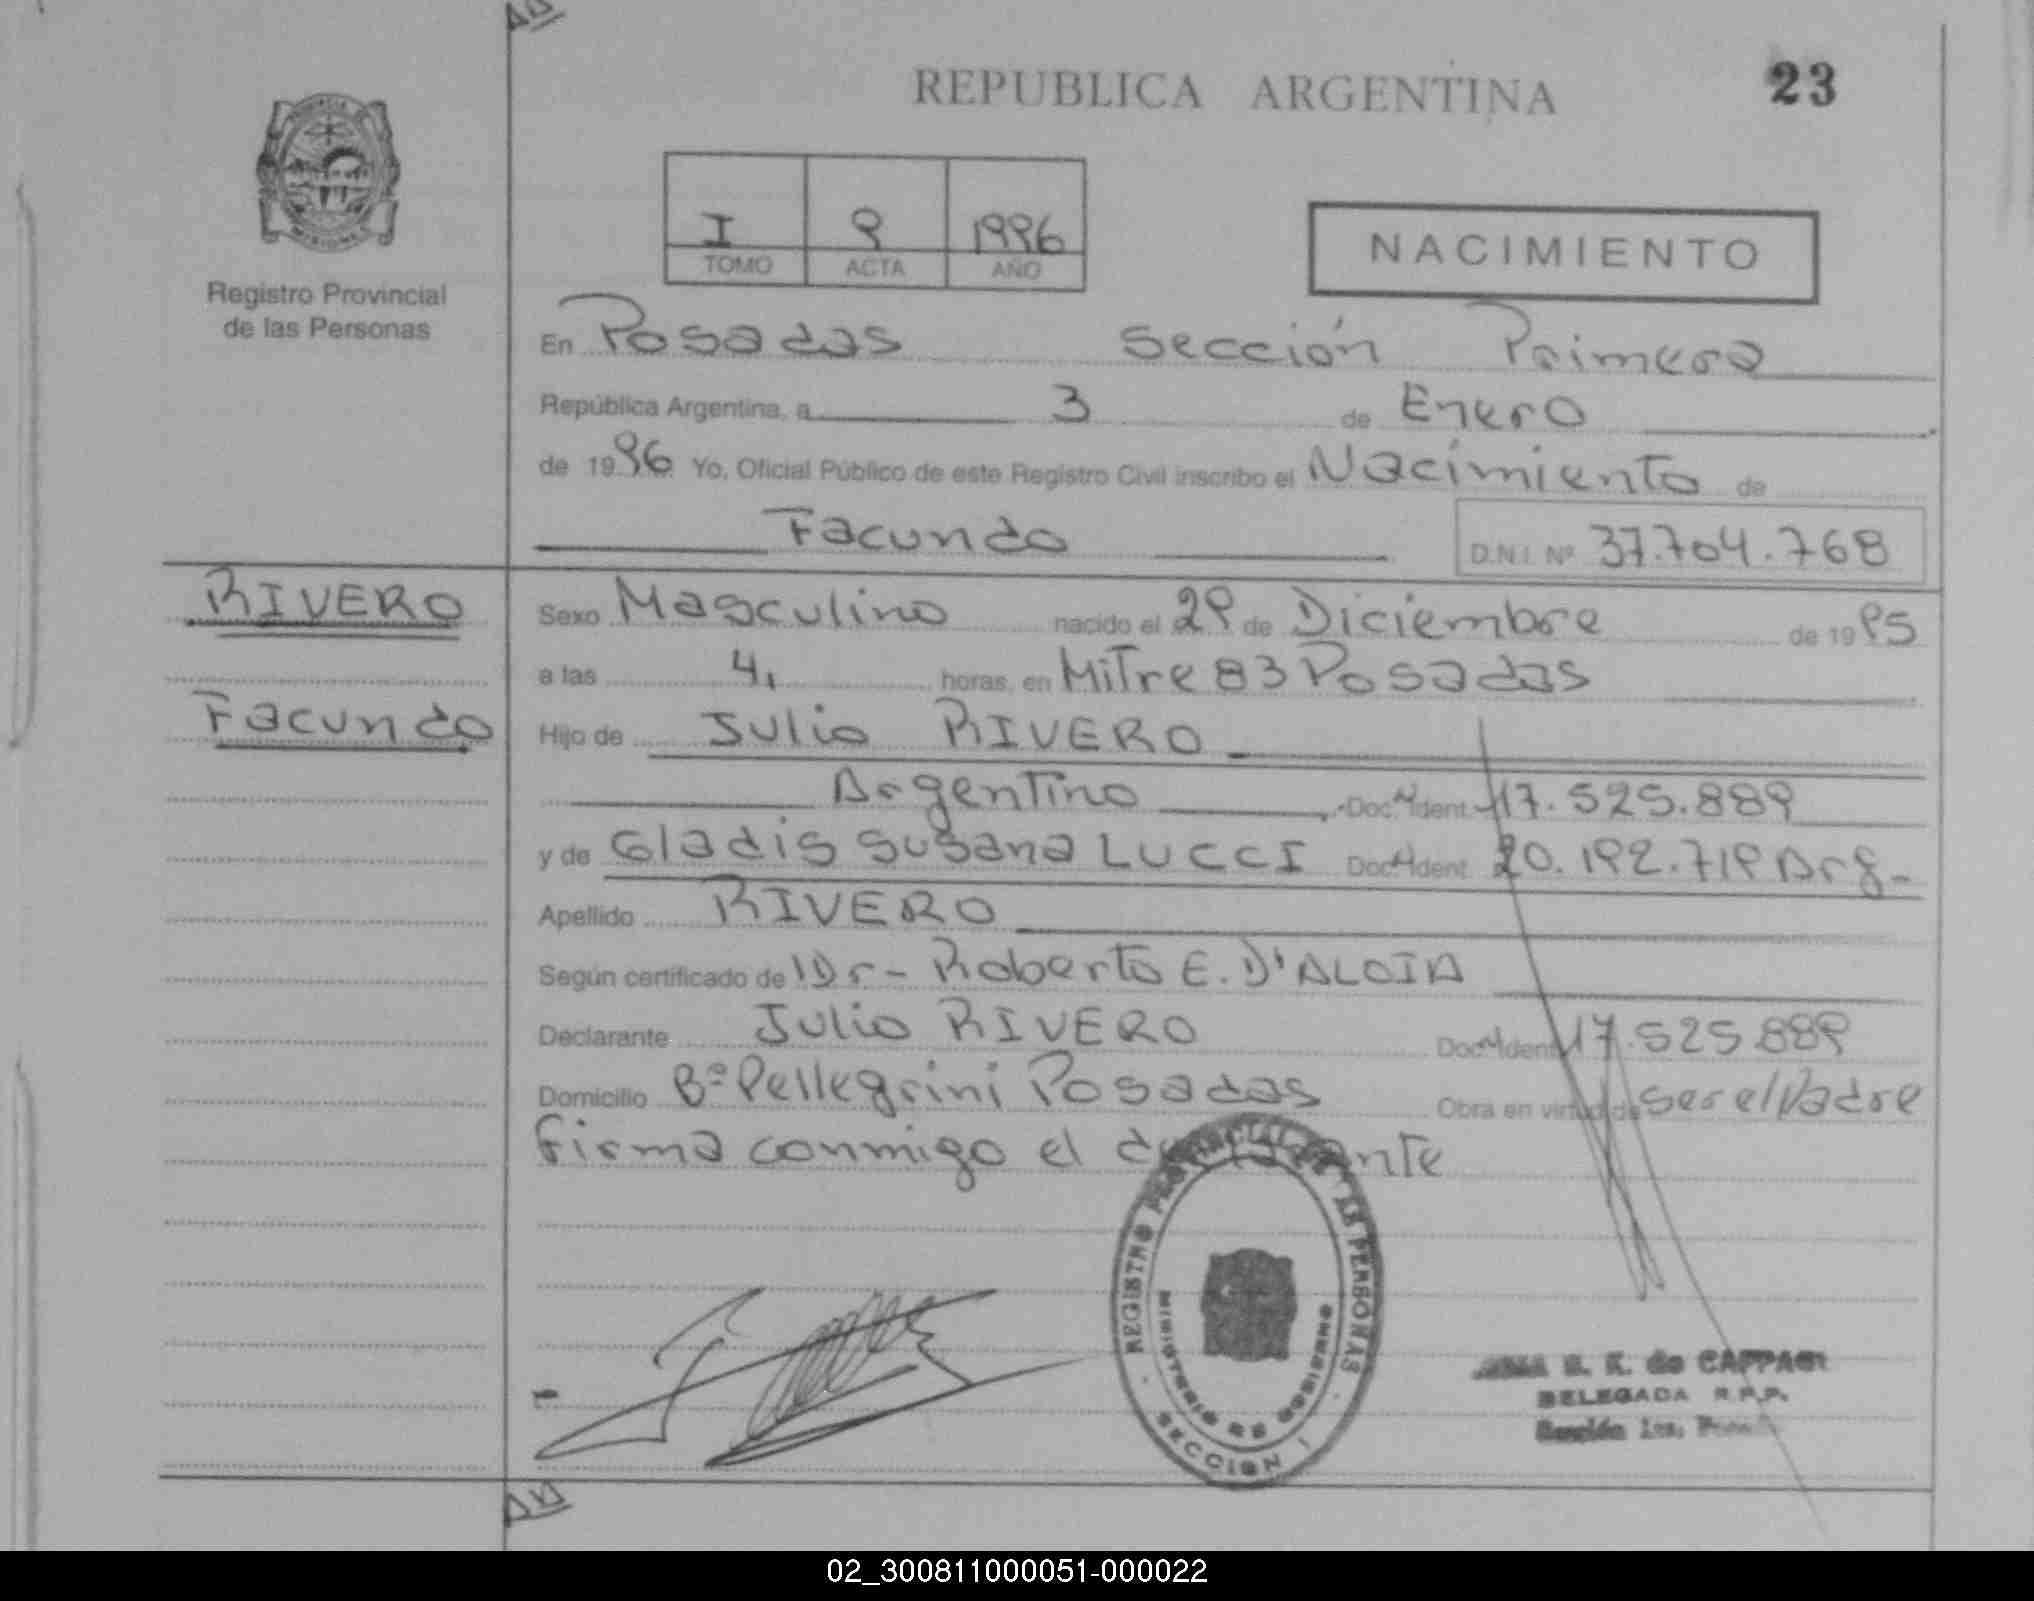 REPUBLICA ARGENTINA
23
I 9 1996
TOMO ACTA AÑO
NACIMIENTO
MISIONES
Registro Provincial
de las Personas
En Posadas Sección Primera
República Argentina, a 3 de Enero
de 1996 Yo, Oficial Público de este Registro Civil inscribo el Nacimiento de
Facundo
D.N.I. Nº 37.704.768
RIVERO
Facundo
Sexo Masculino nacido el 29 de Diciembre de 1995
a las 4, horas, en Mitre 83 Posadas
Hijo de Julio RIVERO
Argentino Doc. Ident. 17.525.889
y de Gladis Susana LUCCI Doc. Ident. 20.192.719 Arg-
Apellido RIVERO
Según certificado de Dr- Roberto E. D'ALOIA
Declarante Julio RIVERO Doc. Ident. 17.525.889
Domicilio Bº Pellegrini Posadas Obra en virtud de ser el Padre
firma conmigo el declarante
REGISTRO PROVINCIAL DE LAS PERSONAS
MINISTERIO DE GOBIERNO
SECCION I
S. K. de
DELEGADA R.P.P.
Sección 1ra.
02_300811000051-000022